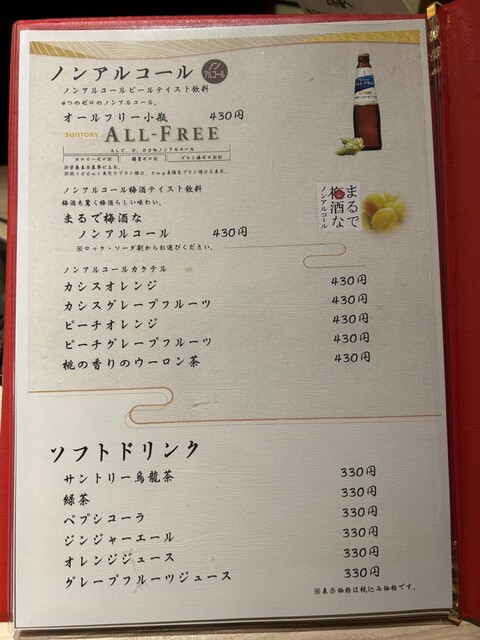 ノンアルコール ノンアルコール
ノンアルコールビールテイスト飲料
6つのゼロのノンアルコール。
オールフリー小瓶 430円
SUNTORY ALL-FREE
ALC. 0.00%ノンアルコール
カロリーゼロ※ 糖質ゼロ※ プリン体ゼロ※
※栄養表示基準による。
ノンアルコール梅酒テイスト飲料
梅酒も驚く梅酒らしい味わい。
まるで梅酒な
ノンアルコール 430円
※ロック・ソーダ割からお選びください。
まるで
梅酒な
ノンアルコール
ノンアルコールカクテル
カシスオレンジ 430円
カシスグレープフルーツ 430円
ピーチオレンジ 430円
ピーチグレープフルーツ 430円
桃の香りのウーロン茶 430円
ソフトドリンク
サントリー烏龍茶 330円
緑茶 330円
ペプシコーラ 330円
ジンジャーエール 330円
オレンジジュース 330円
グレープフルーツジュース 330円
※表示価格は税込み価格です。